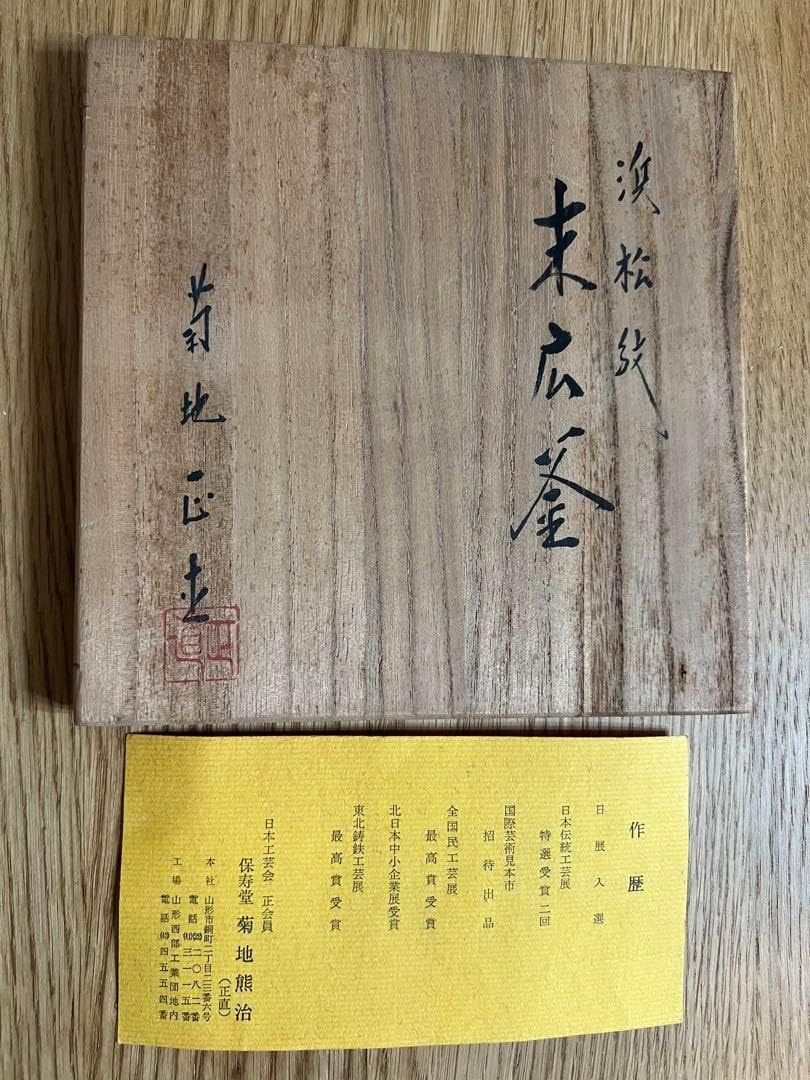 浜松紋
末広釜
菊地正直
作歴
日展入選
日本伝統工芸展
特選受賞二回
国際芸術見本市
招待出品
全国民工芸展
最高賞受賞
北日本中小企業展受賞
東北鋳鉄工芸展
最高賞受賞
日本工芸会 正会員
保寿堂 菊地熊治
(正直)
本社 山形市銅町二丁目二三番六号
電話 ㉒一〇八二番
三一一五番
工場 山形西部工業団地内
電話 四五五四番